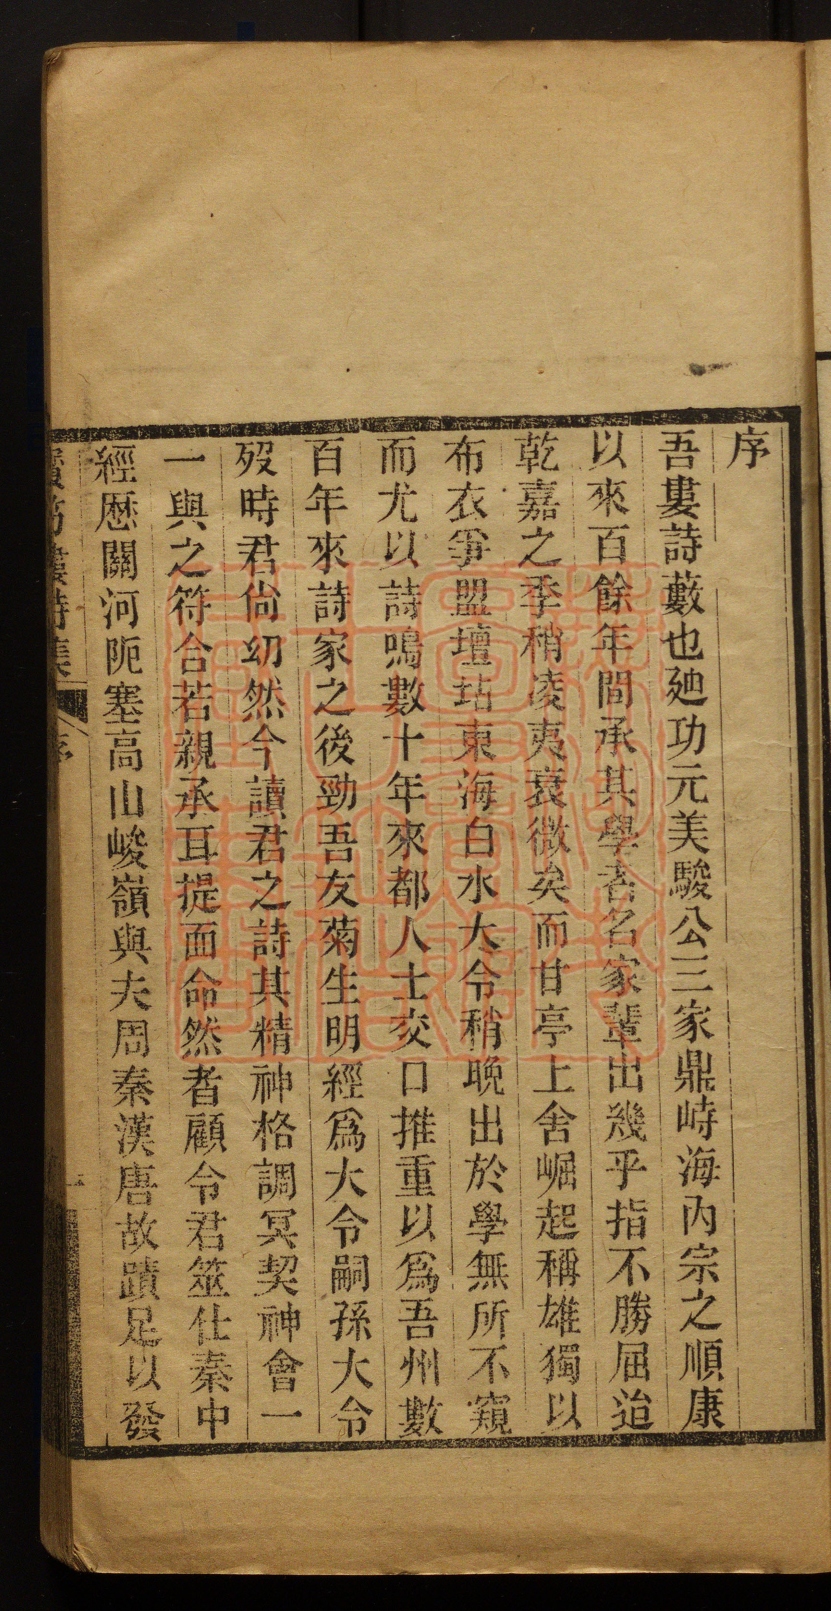 序
吾婁詩藪也廸功元美駿公三家鼎峙海內宗之順康
以來百餘年間承其學者名家輩出幾乎指不勝屈迨
乾嘉之季稍凌夷衰微矣而甘亭上舍崛起稱雄獨以
布衣爭盟壇坫東海白水大令稍晚出於學無所不窺
而尤以詩鳴數十年來都人士交口推重以爲吾州數
百年來詩家之後勁吾友菊生明經爲大令嗣孫大令
歿時君尙幼然今讀君之詩其精神格調冥契神會一
一與之符合若親承耳提面命然者顧令君筮仕秦中
經歷關河阨塞高山峻嶺與夫周秦漢唐故蹟足以發
詩集 序 一